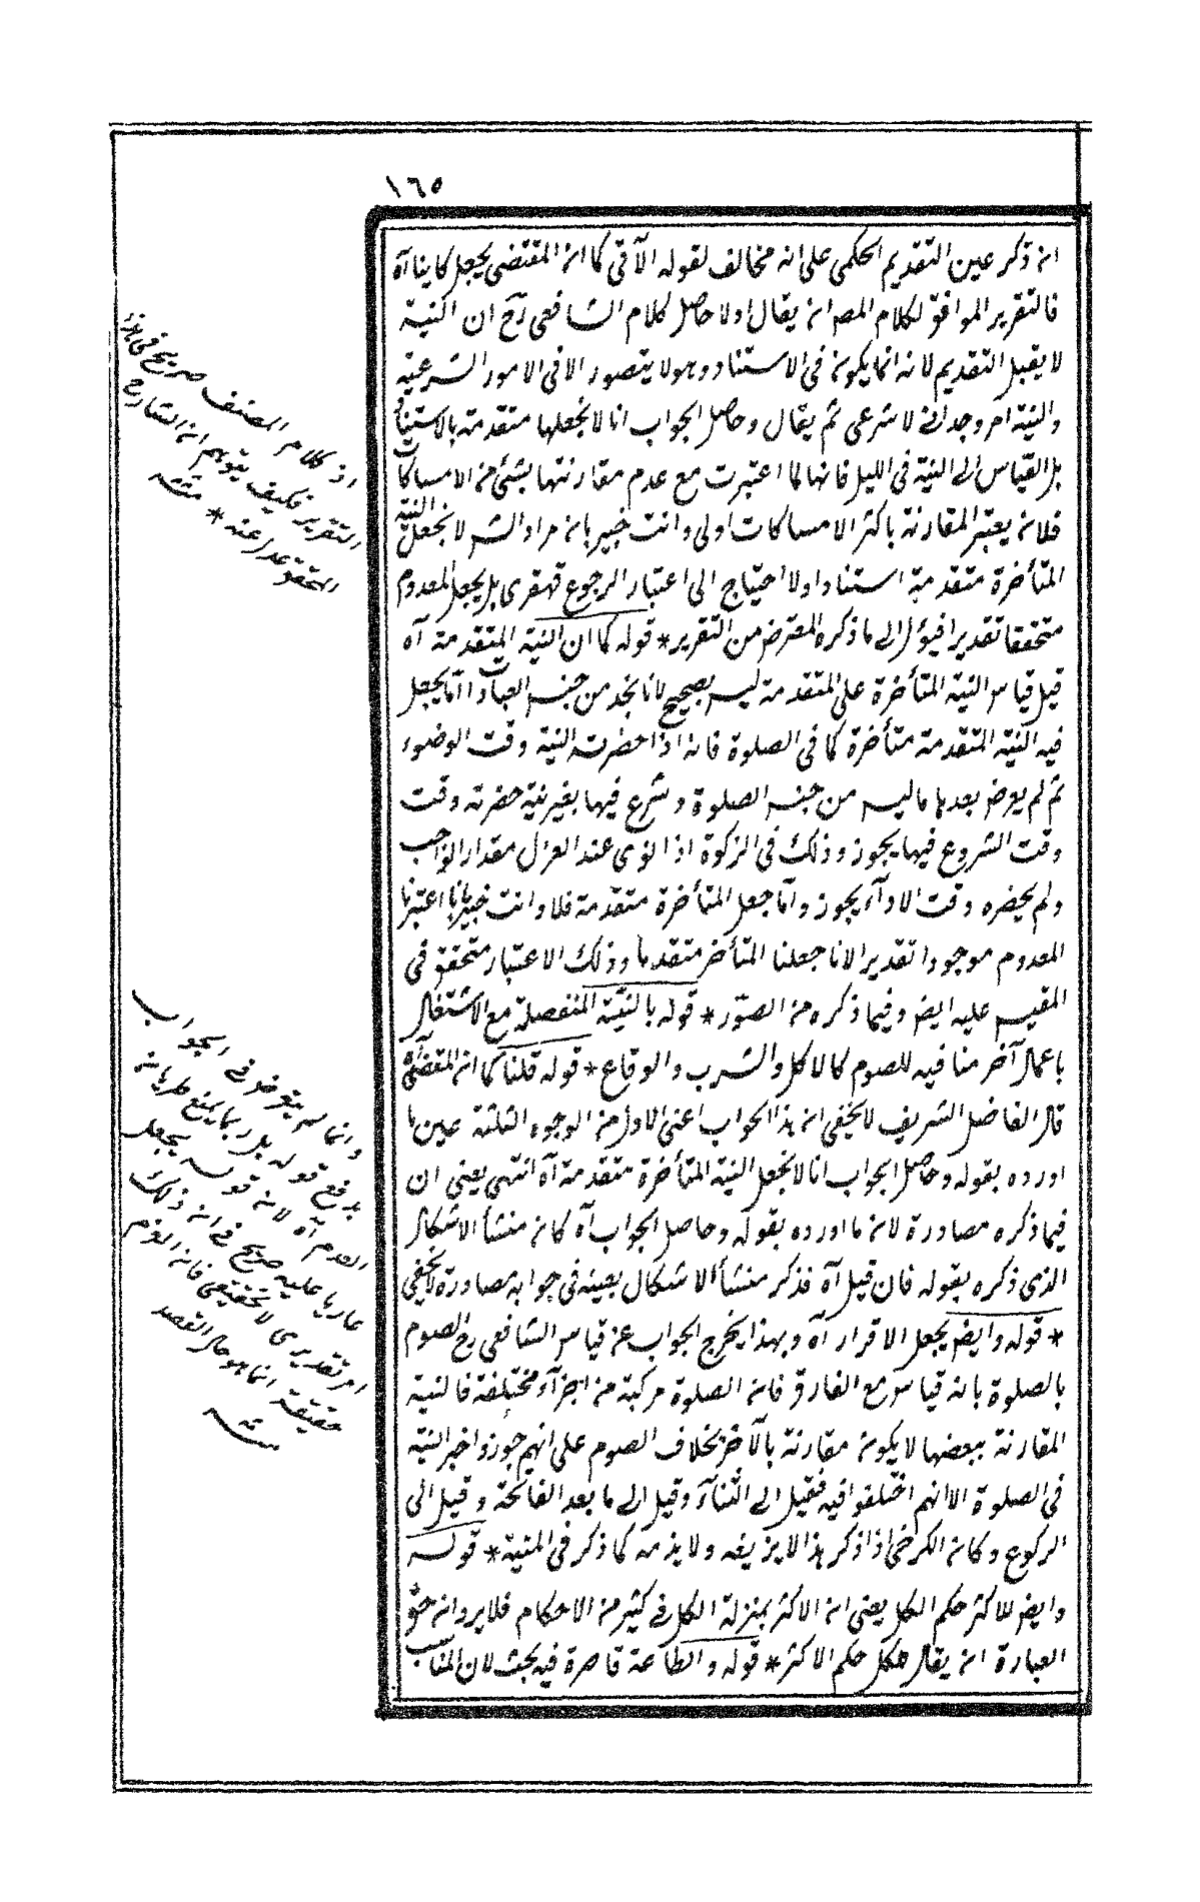 ١٦٥
ان ذكر عين التقديم الحكمى على انه مخالف لقوله الآتى كما ان المقتضى يجعل كاينا آه
فالتقرير الموافق لكلام المص ان يقال اولا حاصل كلام الشافعى رح ان النية
لا يقبل التقديم لانه انما يكون فى الاستناد وهو لا يتصور الا فى الامور الشرعية
والنية امر وجدانى لا شرعى ثم يقال وحاصل الجواب انا لا نجعلها متقدمة بالاستناد
بل القياس الى النية فى الليل فانها لما اعتبرت مع عدم مقارنتها بشئ من الامساكات
فلان يعتبر المقارنة باكثر الامساكات اولى وانت خبير بان مراد الش لا نجعل النية
المتأخرة متقدمة استنادا ولا احتياج الى اعتبار الرجوع قهقرى بل يجعل المعدوم
متحققا تقديرا فيؤل الى ما ذكره المعترض من التقرير * قوله كما ان النية المتقدمة آه
قيل قياس النية المتأخرة على المتقدمة ليس بصحيح لانا نجد من جنس العبادات انما يجعل
فيه النية المتقدمة متأخرة كما فى الصلوة فانه اذا حضرت النية وقت الوضوء
ثم لم يعرض بعدها ما ليس من جنس الصلوة وشرع فيها بغير نية حضرته وقت
وقت الشروع فيها يجوز وذلك فى الزكوة اذا نوى عند العزل مقدار الواجب
ولم يحضره وقت الادآء يجوز واما جعل المتأخرة متقدمة فلا وانت خبير بانا اعتبرنا
المعدوم موجودا تقديرا لا انا جعلنا المتأخر متقدما وذلك الاعتبار متحقق فى
المقيس عليه ايض وفيما ذكره من الصور * قوله بالنية المنفصلة مع الاشتغال
باعمال آخر منافيه للصوم كالاكل والشرب والوقاع * قوله قلنا كما ان المقتضى آه
قال الفاضل الشريف لا يخفى ان هذا الجواب اعنى الاول من الوجوه الثلثة عين ما
اورده بقوله وحاصل الجواب انا لا نجعل النية المتأخرة متقدمة آه انتهى يعنى ان
فيما ذكره مصادرة لان ما اورده بقوله وحاصل الجواب آه كان منشأ الاشكال
الذى ذكره بقوله فان قيل آه فذكر منشأ الاشكال بعينه فى جوابه مصادرة لا يخفى
* قوله وايض يجعل الاقرار آه وبهذا يخرج الجواب عن قياس الشافعى رح الصوم
بالصلوة بانه قياس مع الفارق فان الصلوة مركبة من اجزآء مختلفة فالنية
المقارنة ببعضها لا يكون مقارنة بالآخر بخلاف الصوم على انهم جوزوا تأخير النية
فى الصلوة الا انهم اختلفوا فيه فقيل الى الثناء وقيل الى ما بعد الفاتحة وقيل الى
الركوع وكان الكرخى اذا ذكر هذا لا يزيفه ولا يذمه كما ذكر فى المنية * قوله
وايض للاكثر حكم الكل يعنى ان الاكثر بمنزلة الكل فى كثير من الاحكام فلا يرد ان حق
العبارة ان يقال للكل حكم الاكثر * قوله والطاعة قاصرة فيه بحث لان المناسب
اذ كلام المصنف صريح فى هذا
التقرير فكيف يتوهم ان الشارح
المحقق عدل عنه * منه
وانما لم يتعرض فى الجواب
بدفع قوله بل ربما يمنع طريانه
العدم آه لان قوله يجعل
عاريا عليه صريح فى ان ذلك
امر تقديرى لا تحقيقى فان العزم
حقيقة انما هو حال القصد
منه